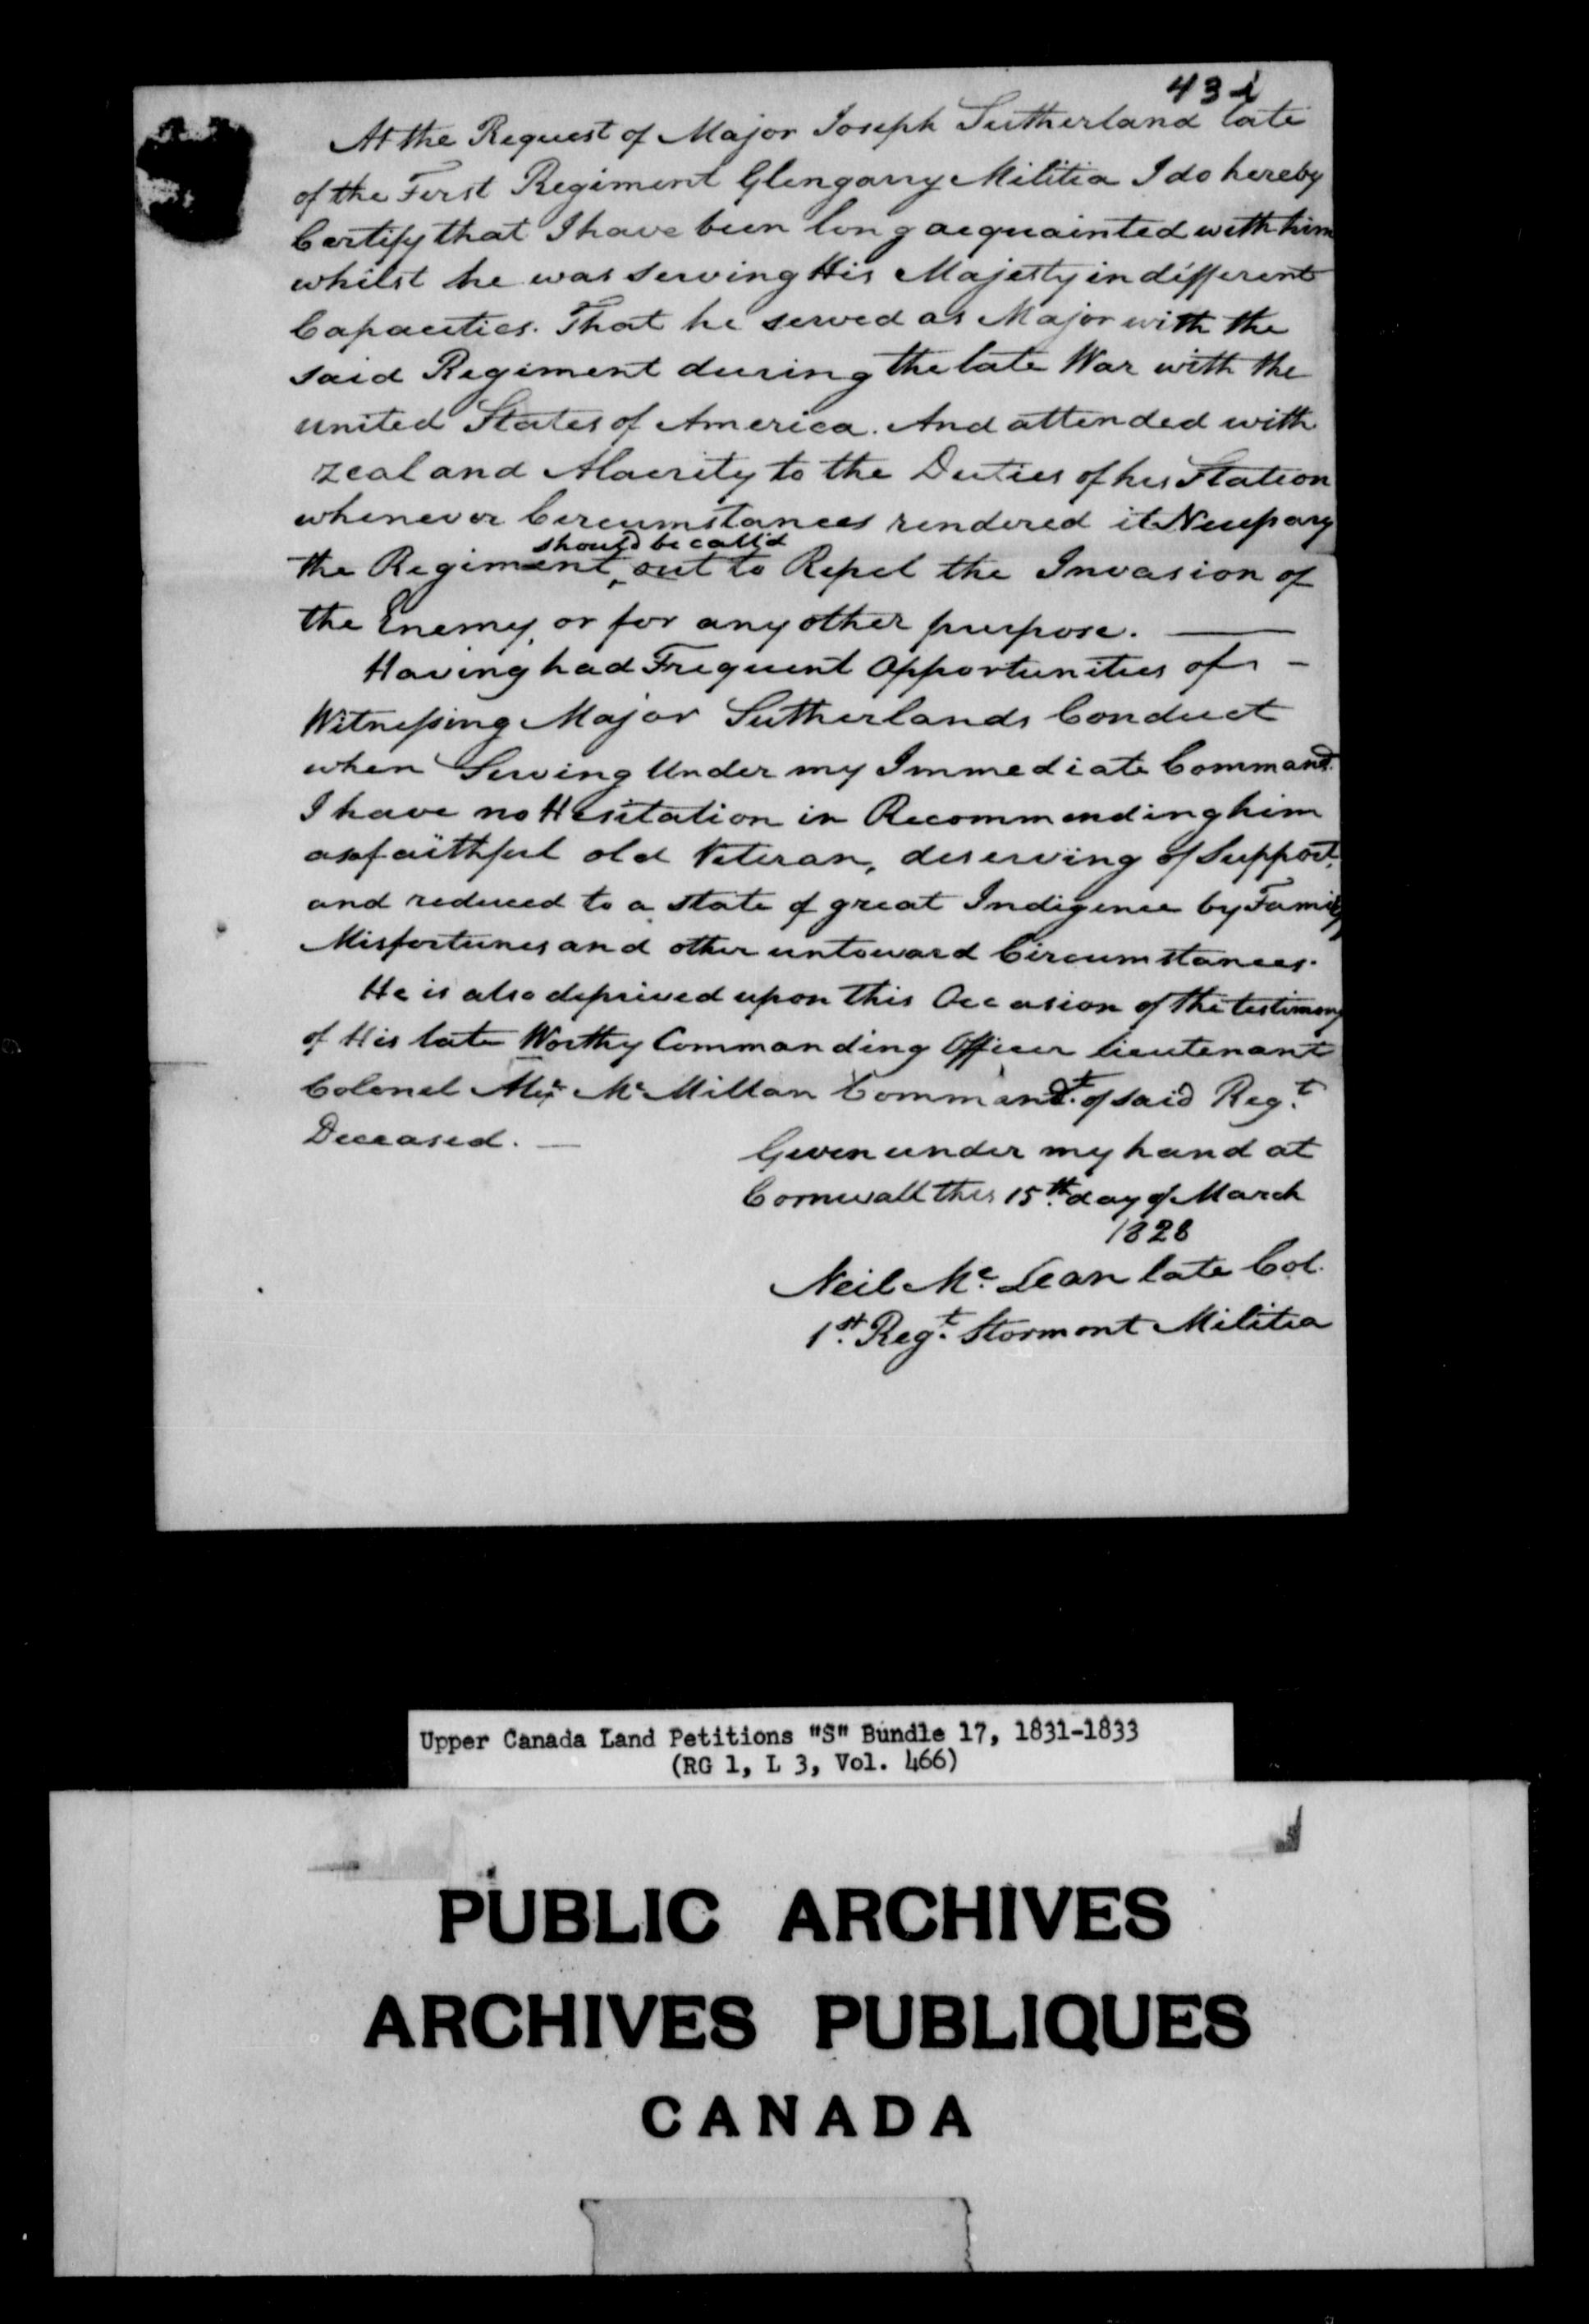 43i
At the Request of Major Joseph Sutherland late
of the First Regiment Glengarry Militia I do hereby
Certify that I have been long acquainted with him
whilst he was serving His Majesty in different
Capacities. That he served as Major with the
said Regiment during the late War with the
united States of America. And attended with
zeal and Alacrity to the Duties of his Station
whenever Circumstances rendered it Necessary
should be call'd
the Regiment, out to Repel the Invasion of
the Enemy, or for any other purpose. —
Having had Frequent Opportunities of -
Witnessing Major Sutherlands Conduct
when Serving Under my Immediate Command.
I have no Hesitation in Recommending him
as a faithful old Veteran, deserving of Support,
and reduced to a state of great Indigence by Family
Misfortunes and other untoward Circumstances.
He is also deprived upon this Occasion of the testimony
of His late Worthy Commanding Officer lieutenant
Colonel Alexr Mc Millan Commandt. of said Regt.
Deceased. —
Given under my hand at
Cornwall this 15th. day of March
1828
Neil Mc. Lean late Col.
1st. Regt. Stormont Militia
Upper Canada Land Petitions "S" Bundle 17, 1831-1833
(RG 1, L 3, Vol. 466)
PUBLIC ARCHIVES
ARCHIVES PUBLIQUES
CANADA